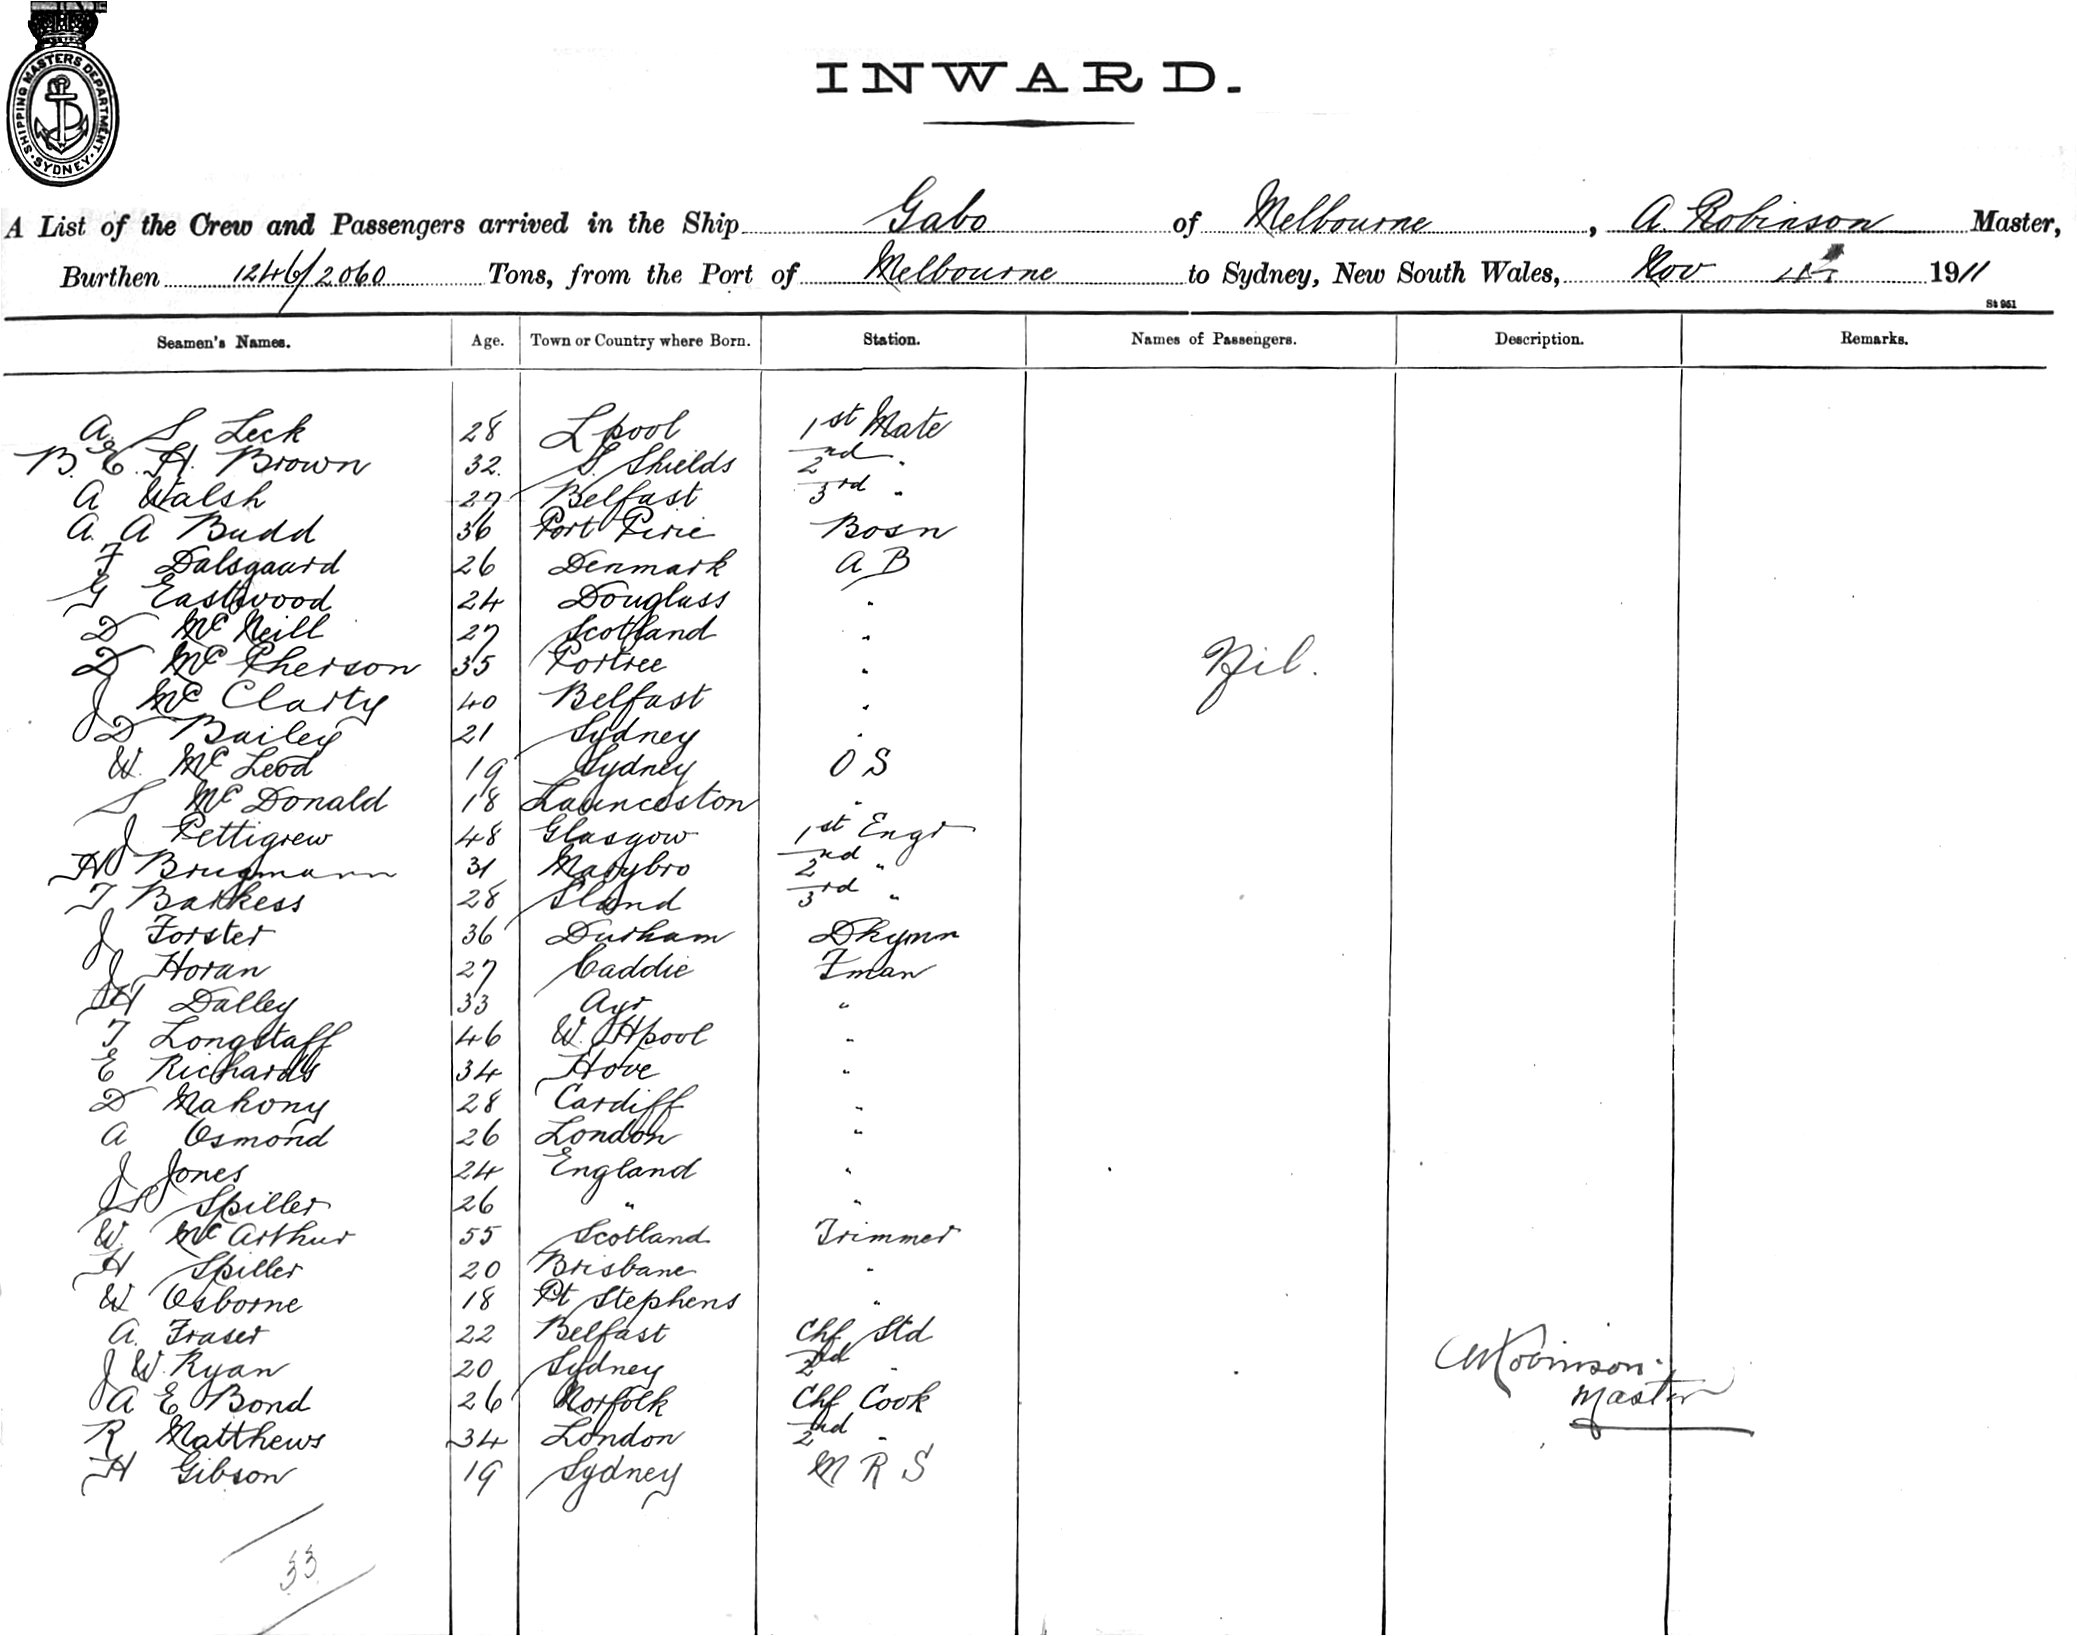 SHIPPING MASTERS DEPARTMENT. SYDNEY
INWARD.
A List of the Crew and Passengers arrived in the Ship Gabo of Melbourne, A Robinson Master,
Burthen 1246/2060 Tons, from the Port of Melbourne to Sydney, New South Wales, Nov 1911
St 951
Seamen's Names. Age. Town or Country where Born. Station. Names of Passengers. Description. Remarks.
A S Leck 28 Lpool 1st Mate
B. E. H. Brown 32. S. Shields 2nd "
A Walsh 27 Belfast 3rd "
A. A Budd 36 Port Pirie Bosn
F Dalsgaard 26 Denmark A B
G Eastwood 24 Douglass "
D Mc Neill 27 Scotland "
D Mc Pherson 35 Portree " Nil.
J Mc Clarty 40 Belfast "
D Bailey 21 Sydney "
W. Mc Leod 19 Sydney O S
S Mc Donald 18 Launceston "
J Pettigrew 48 Glasgow 1st Engr
H Brugmann 31 Marybro 2nd "
T Barkess 28 Sland 3rd "
J Forster 36 Durham Dkymn
J Horan 27 Caddie Fman
H Dalley 33 Ayr "
T Longstaff 46 W. Hpool "
E Richards 34 Hove "
D Mahony 28 Cardiff "
A Osmond 26 London "
J Jones 24 England "
S Spiller 26 " "
W. Mc Arthur 55 Scotland Trimmer
H Spiller 20 Brisbane "
W Osborne 18 Pt Stephens "
A. Fraser 22 Belfast Chf Std
J W. Ryan 20 Sydney 2nd " Robinson.
A E Bond 26 Norfolk Chf Cook Master
R Matthews 34 London 2nd "
H Gibson 19 Sydney M R S
33